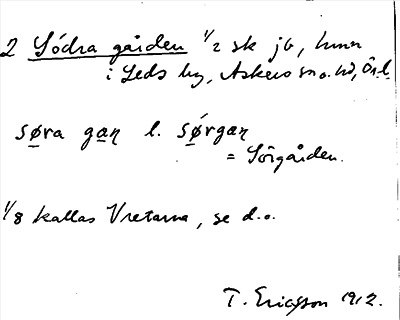 2 Södra gården 1/2 sk jb, hmn
i Leds by, Askers sn o. hd, Ör. l.
søra gaɳ l. sǿrgaɳ
= Sörgården.
1/8 kallas Vretarna, se d.o.
T. Ericsson 1912.